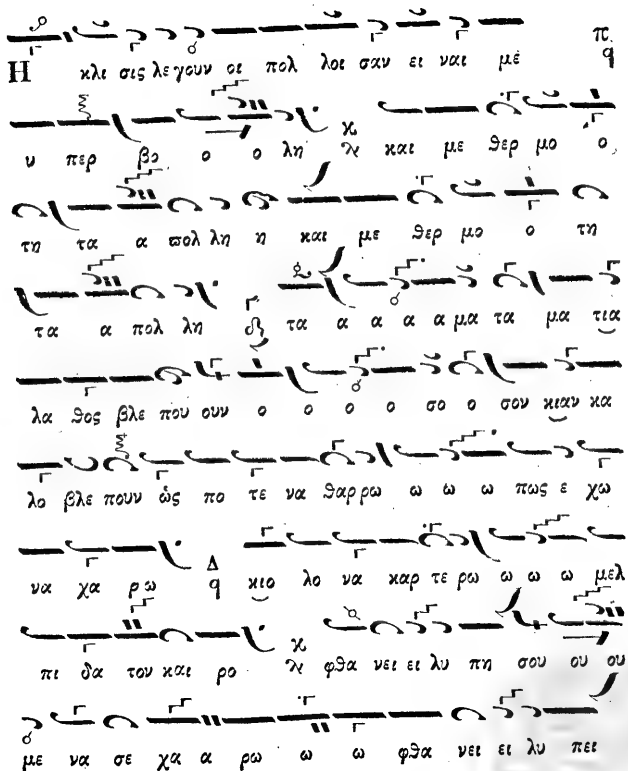 Η κλι σις λε γουν οι πολ λοι σαν ει ναι με π. q
υ περ βο ο ο λη ϗ και με θερ μο ο,
τη τα α πολ λη η και με θερ μο ο τη
τα α πολ λη τα α α α α μα τα μα τια
λα θος βλε που ουν ο ο ο ο σο ο σον κιαν κα
λο βλε πουν ὡς πο τε να θαρ ρω ω ω ω πως ε χω
να χα ρω Δ q κιο λο να καρ τε ρω ω ω ω μελ
πι δα τον και ρο ϗ φθα νει ει λυ πη σου ου ου
με να σε χα α ρω ω ω φθα νει ει λυ πει